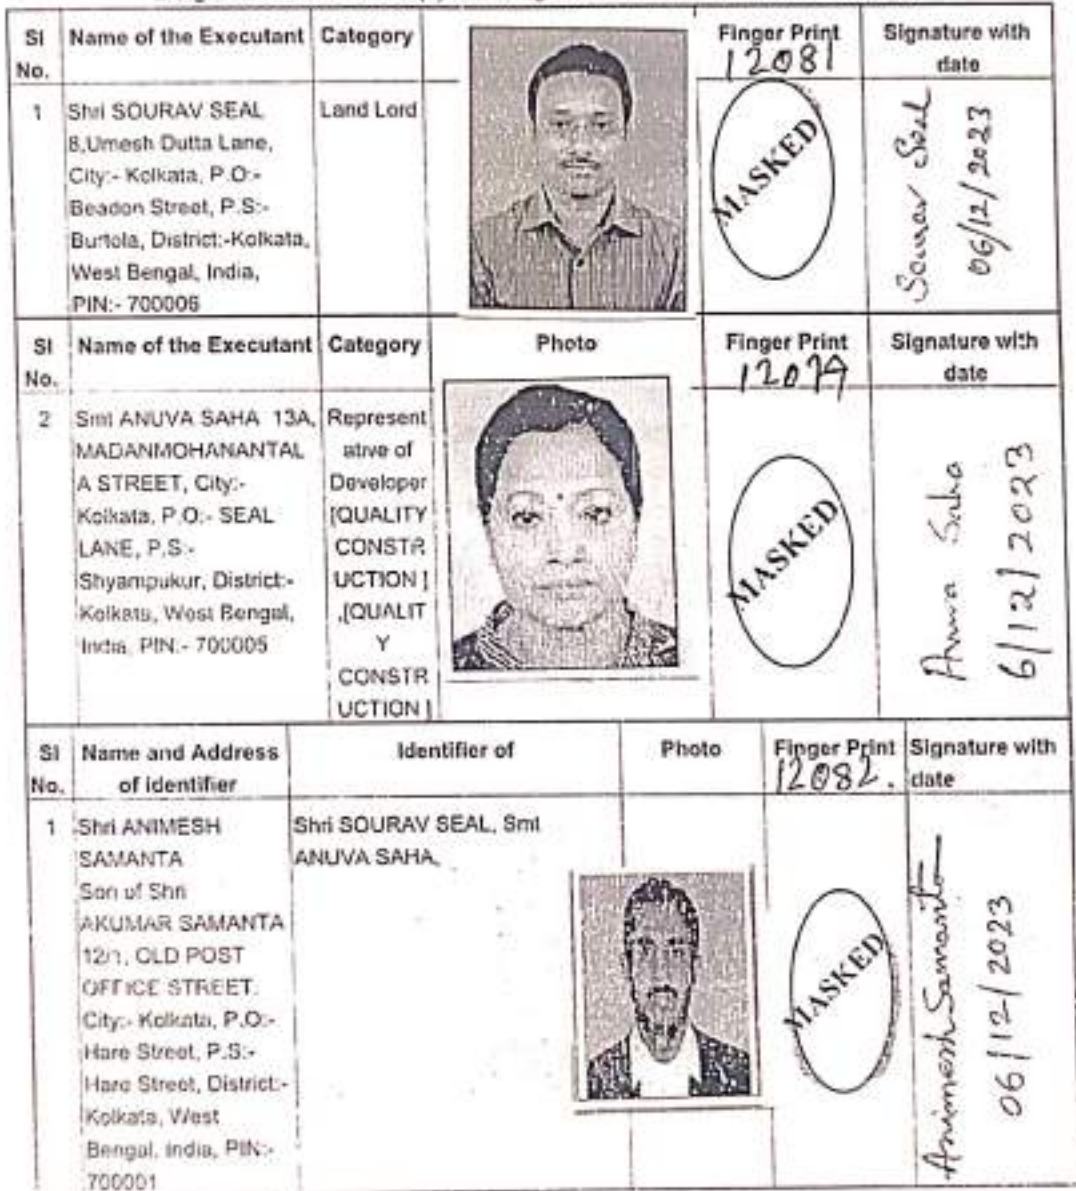 Sl No. Name of the Executant Category Finger Print Signature with date
12081
1 Shri SOURAV SEAL Land Lord
8,Umesh Dutta Lane,
City:- Kolkata, P.O:-
Beadon Street, P.S:-
Burtola, District:-Kolkata,
West Bengal, India,
PIN:- 700006
MASKED
Sourav Seal
06/12/2023
Sl No. Name of the Executant Category Photo Finger Print Signature with date
12079
2 Smt ANUVA SAHA 13A,
MADANMOHANANTAL
A STREET, City:-
Kolkata, P.O:- SEAL
LANE, P.S:-
Shyampukur, District:-
Kolkata, West Bengal,
India, PIN:- 700005
Represent
ative of
Developer
[QUALITY
CONSTR
UCTION ]
,[QUALIT
Y
CONSTR
UCTION ]
MASKED
Anuva Saha
6/12/2023
Sl No. Name and Address of identifier Identifier of Photo Finger Print Signature with date
12082.
1 Shri ANIMESH
SAMANTA
Son of Shri
AKUMAR SAMANTA
12/1, OLD POST
OFFICE STREET.
City:- Kolkata, P.O:-
Hare Street, P.S:-
Hare Street, District:-
Kolkata, West
Bengal, India, PIN:-
700001
Shri SOURAV SEAL, Smt
ANUVA SAHA,
MASKED
Animesh Samanta
06/12/2023